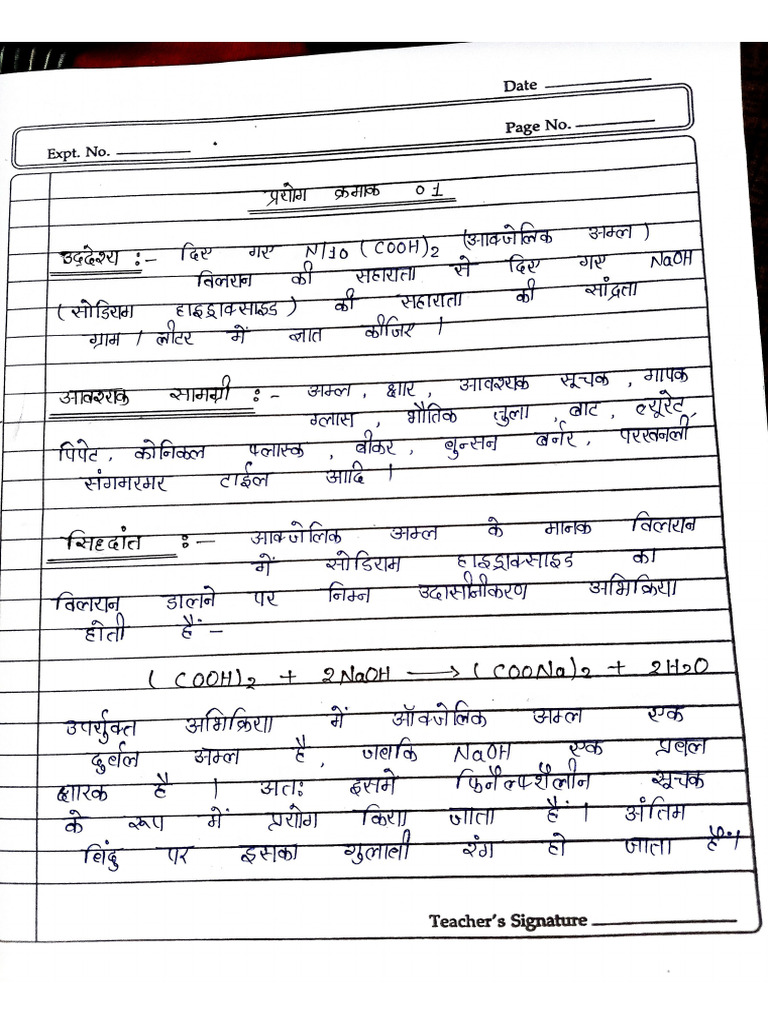 Date
Page No.
Expt. No.
प्रयोग क्रमाक 01
उद्देश्य :- दिए गए N/10 (COOH)2 (आक्जेलिक अम्ल)
विलयन की सहायता से दिए गए NaOH
(सोडियम हाइड्राक्साइड) की सहायता की सांद्रता
ग्राम / लीटर में ज्ञात कीजिए ।
आवश्यक सामग्री :- अम्ल , क्षार , आवश्यक सूचक , मापक
ग्लास , भौतिक तुला , बाट , ब्यूरेट,
पिपेट, कोनिकल फ्लास्क , बीकर , बुन्सन बर्नर, परखनली
संगमरमर टाईल आदि ।
सिद्दांत :- आक्जेलिक अम्ल के मानक विलयन
में सोडियम हाइड्राक्साइड का
विलयन डालने पर निम्न उदासीनीकरण अभिक्रिया
होती हैं -
(COOH)2 + 2NaOH → (COONa)2 + 2H2O
उपर्युक्त अभिक्रिया में ऑक्जेलिक अम्ल एक
दुर्बल अम्ल है , जबकि NaOH एक प्रबल
क्षारक है । अतः इसमे फिनैल्फ्थैलीन सूचक
के रूप में प्रयोग किया जाता हैं । अंतिम
बिंदु पर इसका गुलाबी रंग हो जाता हैं।
Teacher's Signature